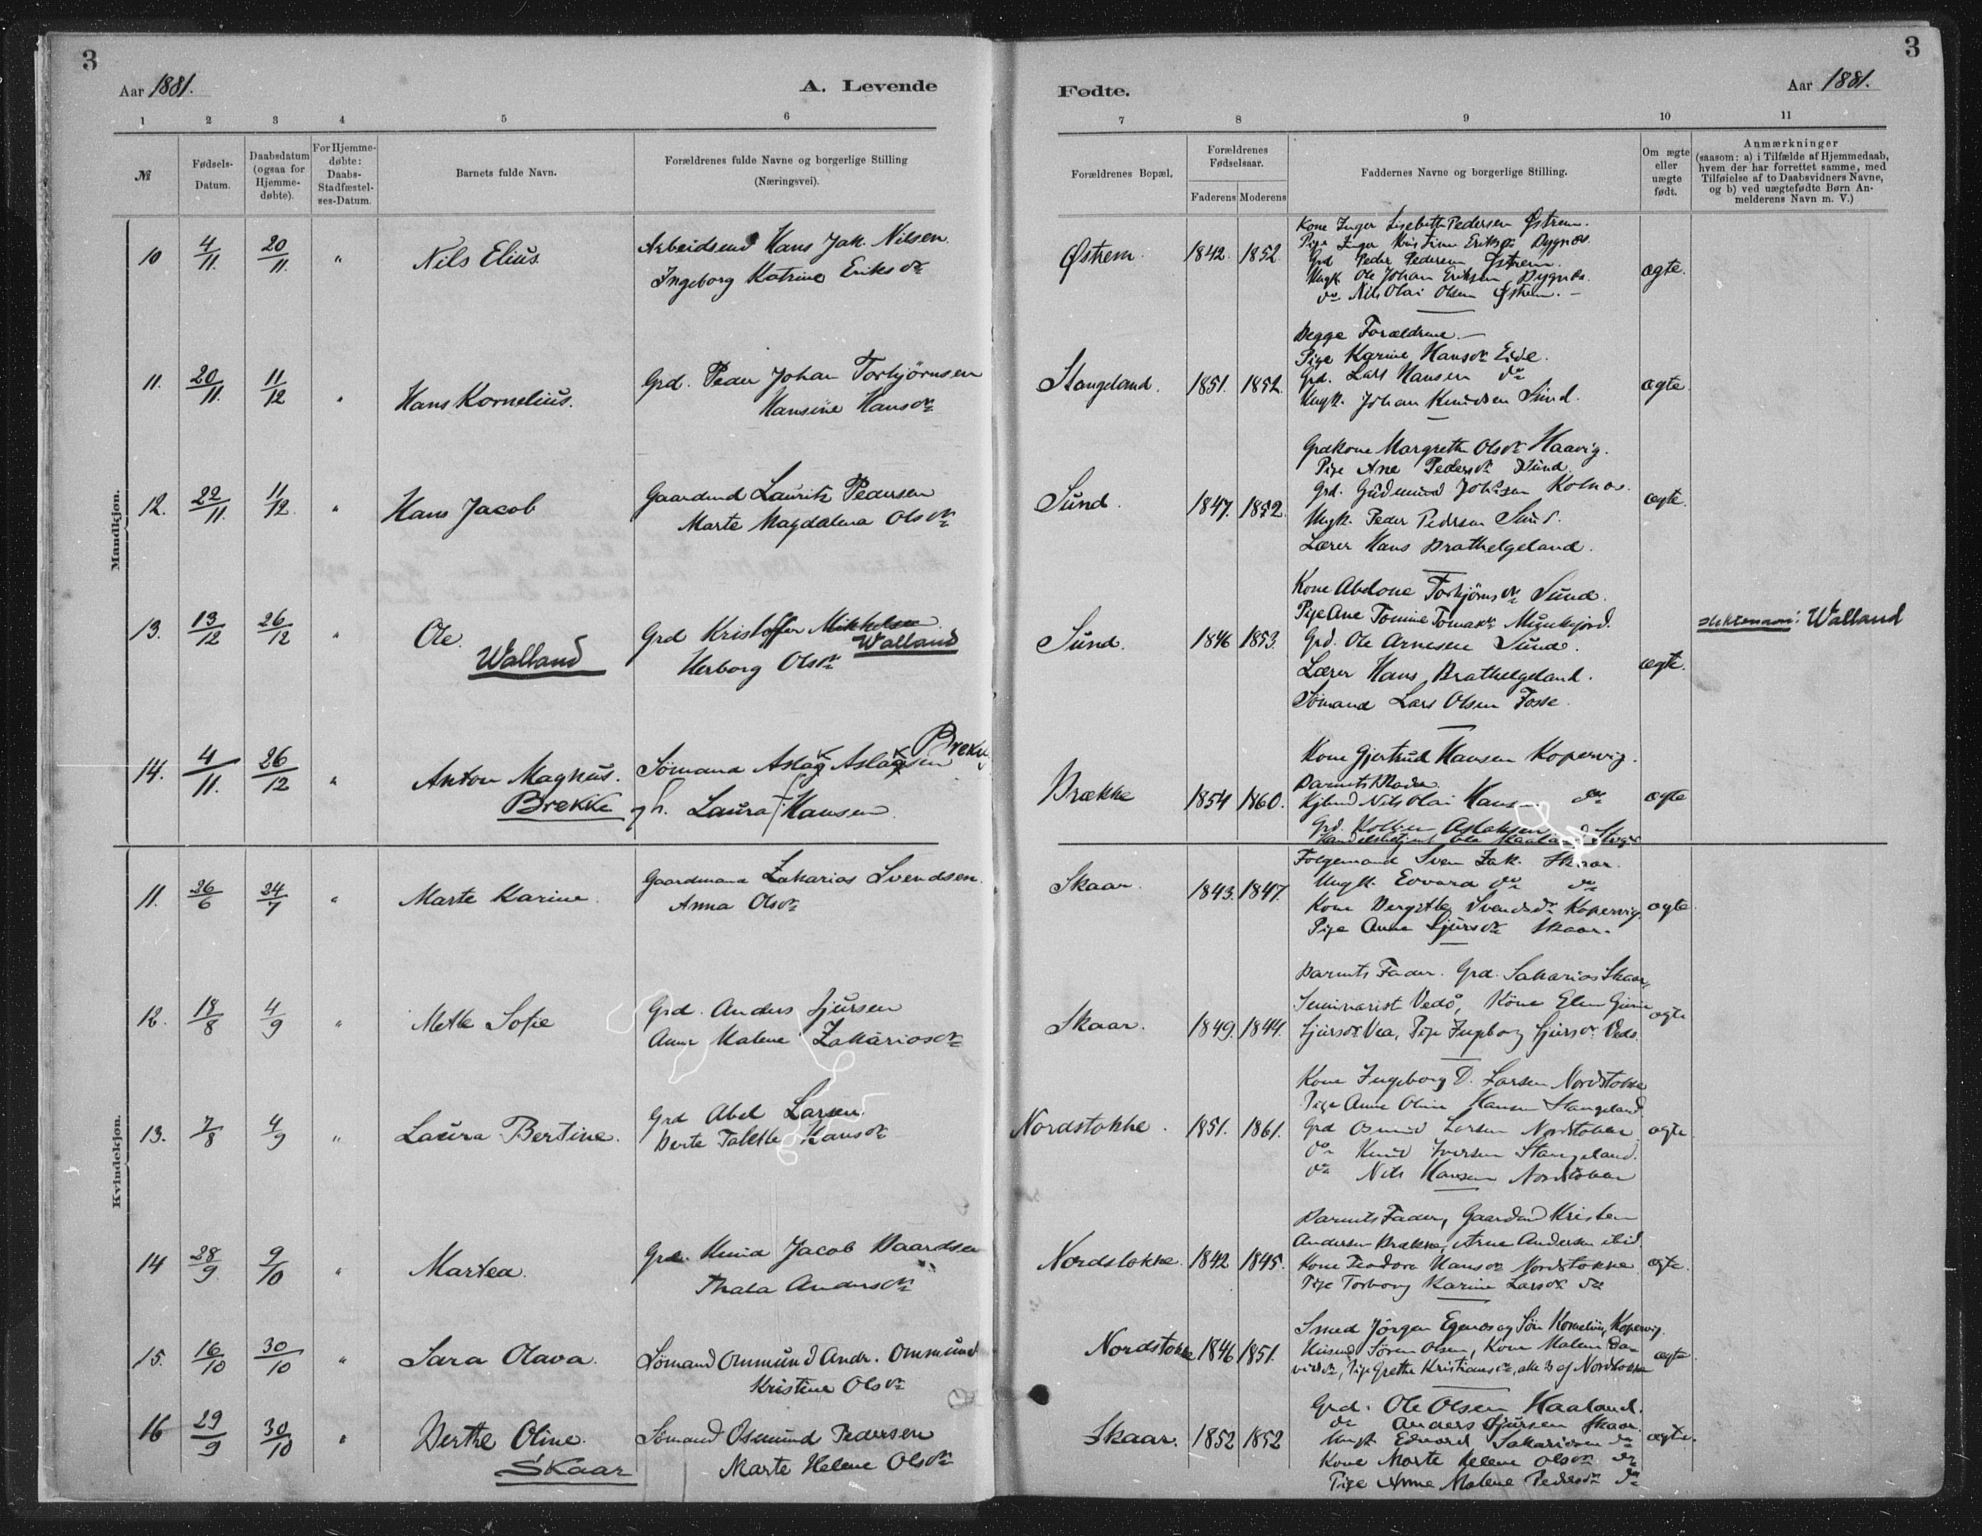 3
Aar 1881.
A. Levende
1 2 3 4 5 6
№
Fødsels-
Datum.
Daabsdatum
(ogsaa for
Hjemme-
døbte).
For Hjemme-
døbte:
Daabs-
Stadfæstel-
ses-Datum.
Barnets fulde Navn.
Forældrenes fulde Navne og borgerlige Stilling
(Næringsvei).
Mandkjøn.
10 4/11 20/11 " Nils Elius
Arbeidsmd Hans Jak. Nilsen
Ingeborg Katrine Eriksdr
11. 20/11 11/12 " Hans Kornelius.
Grd. Peder Johan Torbjørnsen
Hansine Hansdr
12. 22/11 11/12 " Hans Jacob
Gaardmd Lauritz Pedersen
Marte Magdalena Olsdr
13. 13/12 26/12 " Ole
Walland
Grd Kristoffer Mikkelsen
Walland
Herborg Olsdr
14. 4/11 26/12 " Anton Magnus.
Brekke
Sømand Aslak Aslaksen Brekke
gh. Laura Hansen
Kvindekjøn.
11. 26/6 24/7 " Marte Karine
Gaardmand Zakarias Svendsen
Anna Olsdr
12. 18/8 4/9 " Mette Sofie
Grd. Anders Sjursen
Anne Malene Zakariasdr
13. 7/8 4/9 " Laura Bertine.
Grd Abel Larsen
Berte Talette Hansdr
14 28/9 9/10 " Martea.
Grd. Knud Jacob Baardsen
Thala Andersdr
15. 16/10 30/10 " Sara Olava.
Sømand Ommund Andr. Ommund
Kristine Olsdr
16 29/9 30/10 " Berthe Oline.
Skaar
Sømand Osmund Pedersen
Marte Helene Olsdr
3
Fødte.
Aar 1881.
7 8 9 10 11
Forældrenes Bopæl.
Forældrenes
Fødselsaar.
Faderens Moderens
Faddernes Navne og borgerlige Stilling.
Om ægte
eller
uægte
født.
Anmærkninger
(saasom: a) i Tilfælde af Hjemmedaab,
hvem der har forrettet samme, med
Tilføielse af to Daabsvidners Navne,
og b) ved uægtefødte Børn An-
melderens Navn m. V.)
Østrem. 1842. 1852
Kone Inger Lisebeth Pedersen Østrem.
Pige Inger Kristine Eriksdr Dygnæs
Grd Peder Pedersen Østrem.
Ungk. Ole Johan Eriksen Dygnæs
do Nils Olai Olsen Østrem.
ægte.
Stangeland. 1851. 1852.
Begge Forældrene
Pige Karine Hansdr Eide.
Grd. Lars Hansen do
Ungk. Johan Knudsen Sund.
ægte
Sund. 1847. 1852.
Grdkone Margrethe Olsdr Haavig.
Pige Ane Pedersdr Sund.
Grd. Gudmund Johsen Kolnæs.
Ungk. Peder Pedersen Sund.
Lærer Hans Brathelgeland.
ægte.
Sund. 1846 1853.
Kone Abelone Torbjørnsdr Sund.
Pige Ane Tomine Tomasdr Munkejord.
Grd. Ole Arnesen Sund.
Lærer Hans Brathelgeland.
Sømand Lars Olsen Fosse.
ægte.
Slektsnavn: Walland
Brække 1854 1860.
Kone Gjertrud Hansen Kopervig.
Barnets Moder
Kjbmd Nils Olai Hansen do
Grd. Aslaksen
ægte
Skaar. 1843. 1847.
Folgemand Sven Zak. Skaar.
Ungk. Edvard do do
Kone Bergitte Svendsdr Kopervig.
Pige Anna Sjursdr Skaar.
ægte.
Skaar. 1849. 1844.
Barnets Fader. Grd. Sakarias Skaar,
Seminarist Vedø, Kone Elen Gurine
Sjursdr Vea, Pige Ingeborg Sjursdr Vedø.
ægte
Nordstokke. 1851. 1861.
Kone Ingeborg D. Larsen Nordstokke
Pige Anne Oline Hansen Stangeland
Grd Osmund Larsen Nordstokke
do Knud Iversen Stangeland.
do Nils Hansen Nordstokke
ægte.
Nordstokke. 1842 1845.
Barnets Fader, Gaardmd Kristen
Andersen Brække, Arne Andersen ibid.
Kone Teodora Hansdr Nordstokke
Pige Torborg Karine Larsdr do
ægte.
Nordstokke 1846 1851.
Smed Jørgen Egenæs og Søn Kornelius, Kopervig.
Husmd Søren Olsen, Kone Malene Da-
vidsdr, Pige Grethe Kristiansdr, alle 3 af Nordstokke
ægte.
Skaar. 1852 1852
Grd. Ole Olsen Haaland.
do Anders Sjursen Skaar
Ungk Edvard Sakariasen do
Kone Marte Helene Olsdr do
Pige Anne Malene Pedersdr do
ægte.